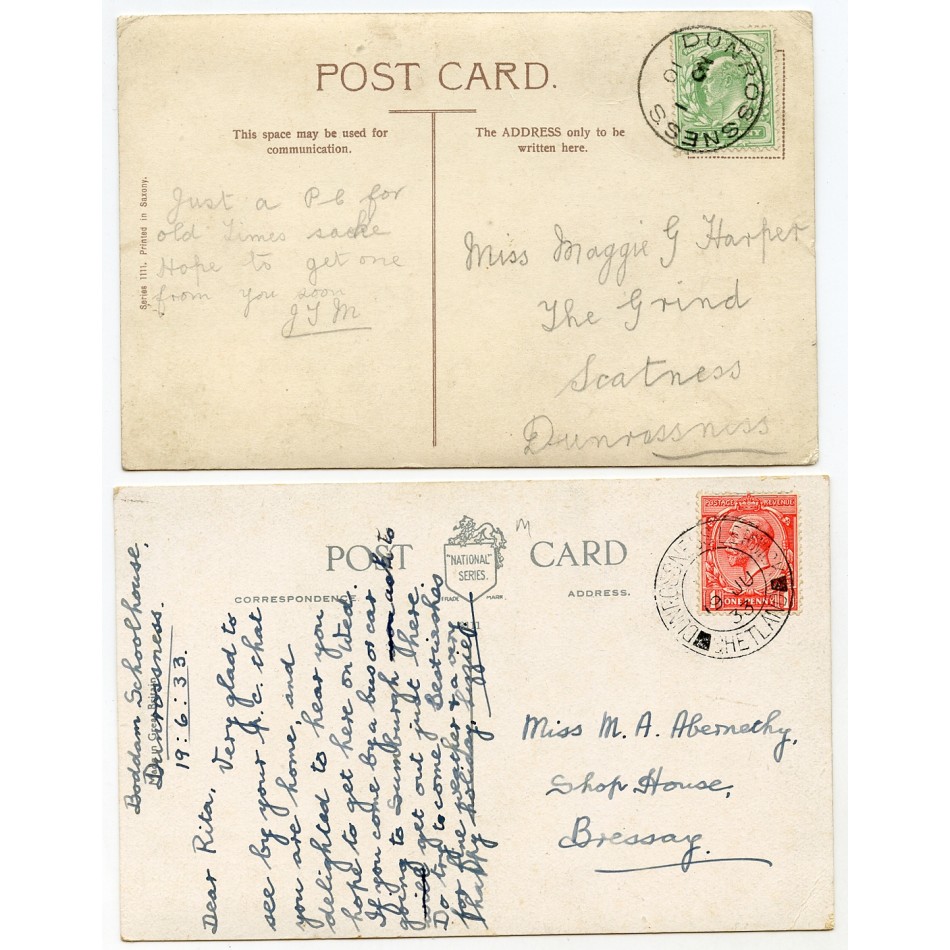 POST CARD.
This space may be used for
communication.
The ADDRESS only to be
written here.
Series 1111. Printed in Saxony.
DUNROSSNESS
Just a PC for
old Times sacke
Hope to get one
from you soon
J T M
Miss Maggie G Harper
The Grind
Scatness
Dunrossniss
POST CARD
"NATIONAL"
SERIES.
TRADE MARK
CORRESPONDENCE.
ADDRESS.
M
POSTAGE REVENUE
ONE PENNY
JU
33
SHETLAND
Boddam Schoolhouse,
Dunrossness.
19:6:33.
Dear Rita, Very glad to
see by your P.C. that
you are home, and
delighted to hear you
hope to get here on Wed.
If you come by a bus or car
going to Sumburgh to
get out just there.
Do try to come &
for fine weather & a very
happy holiday. Lizzie
Miss M. A. Abernethy,
Shop House,
Bressay.